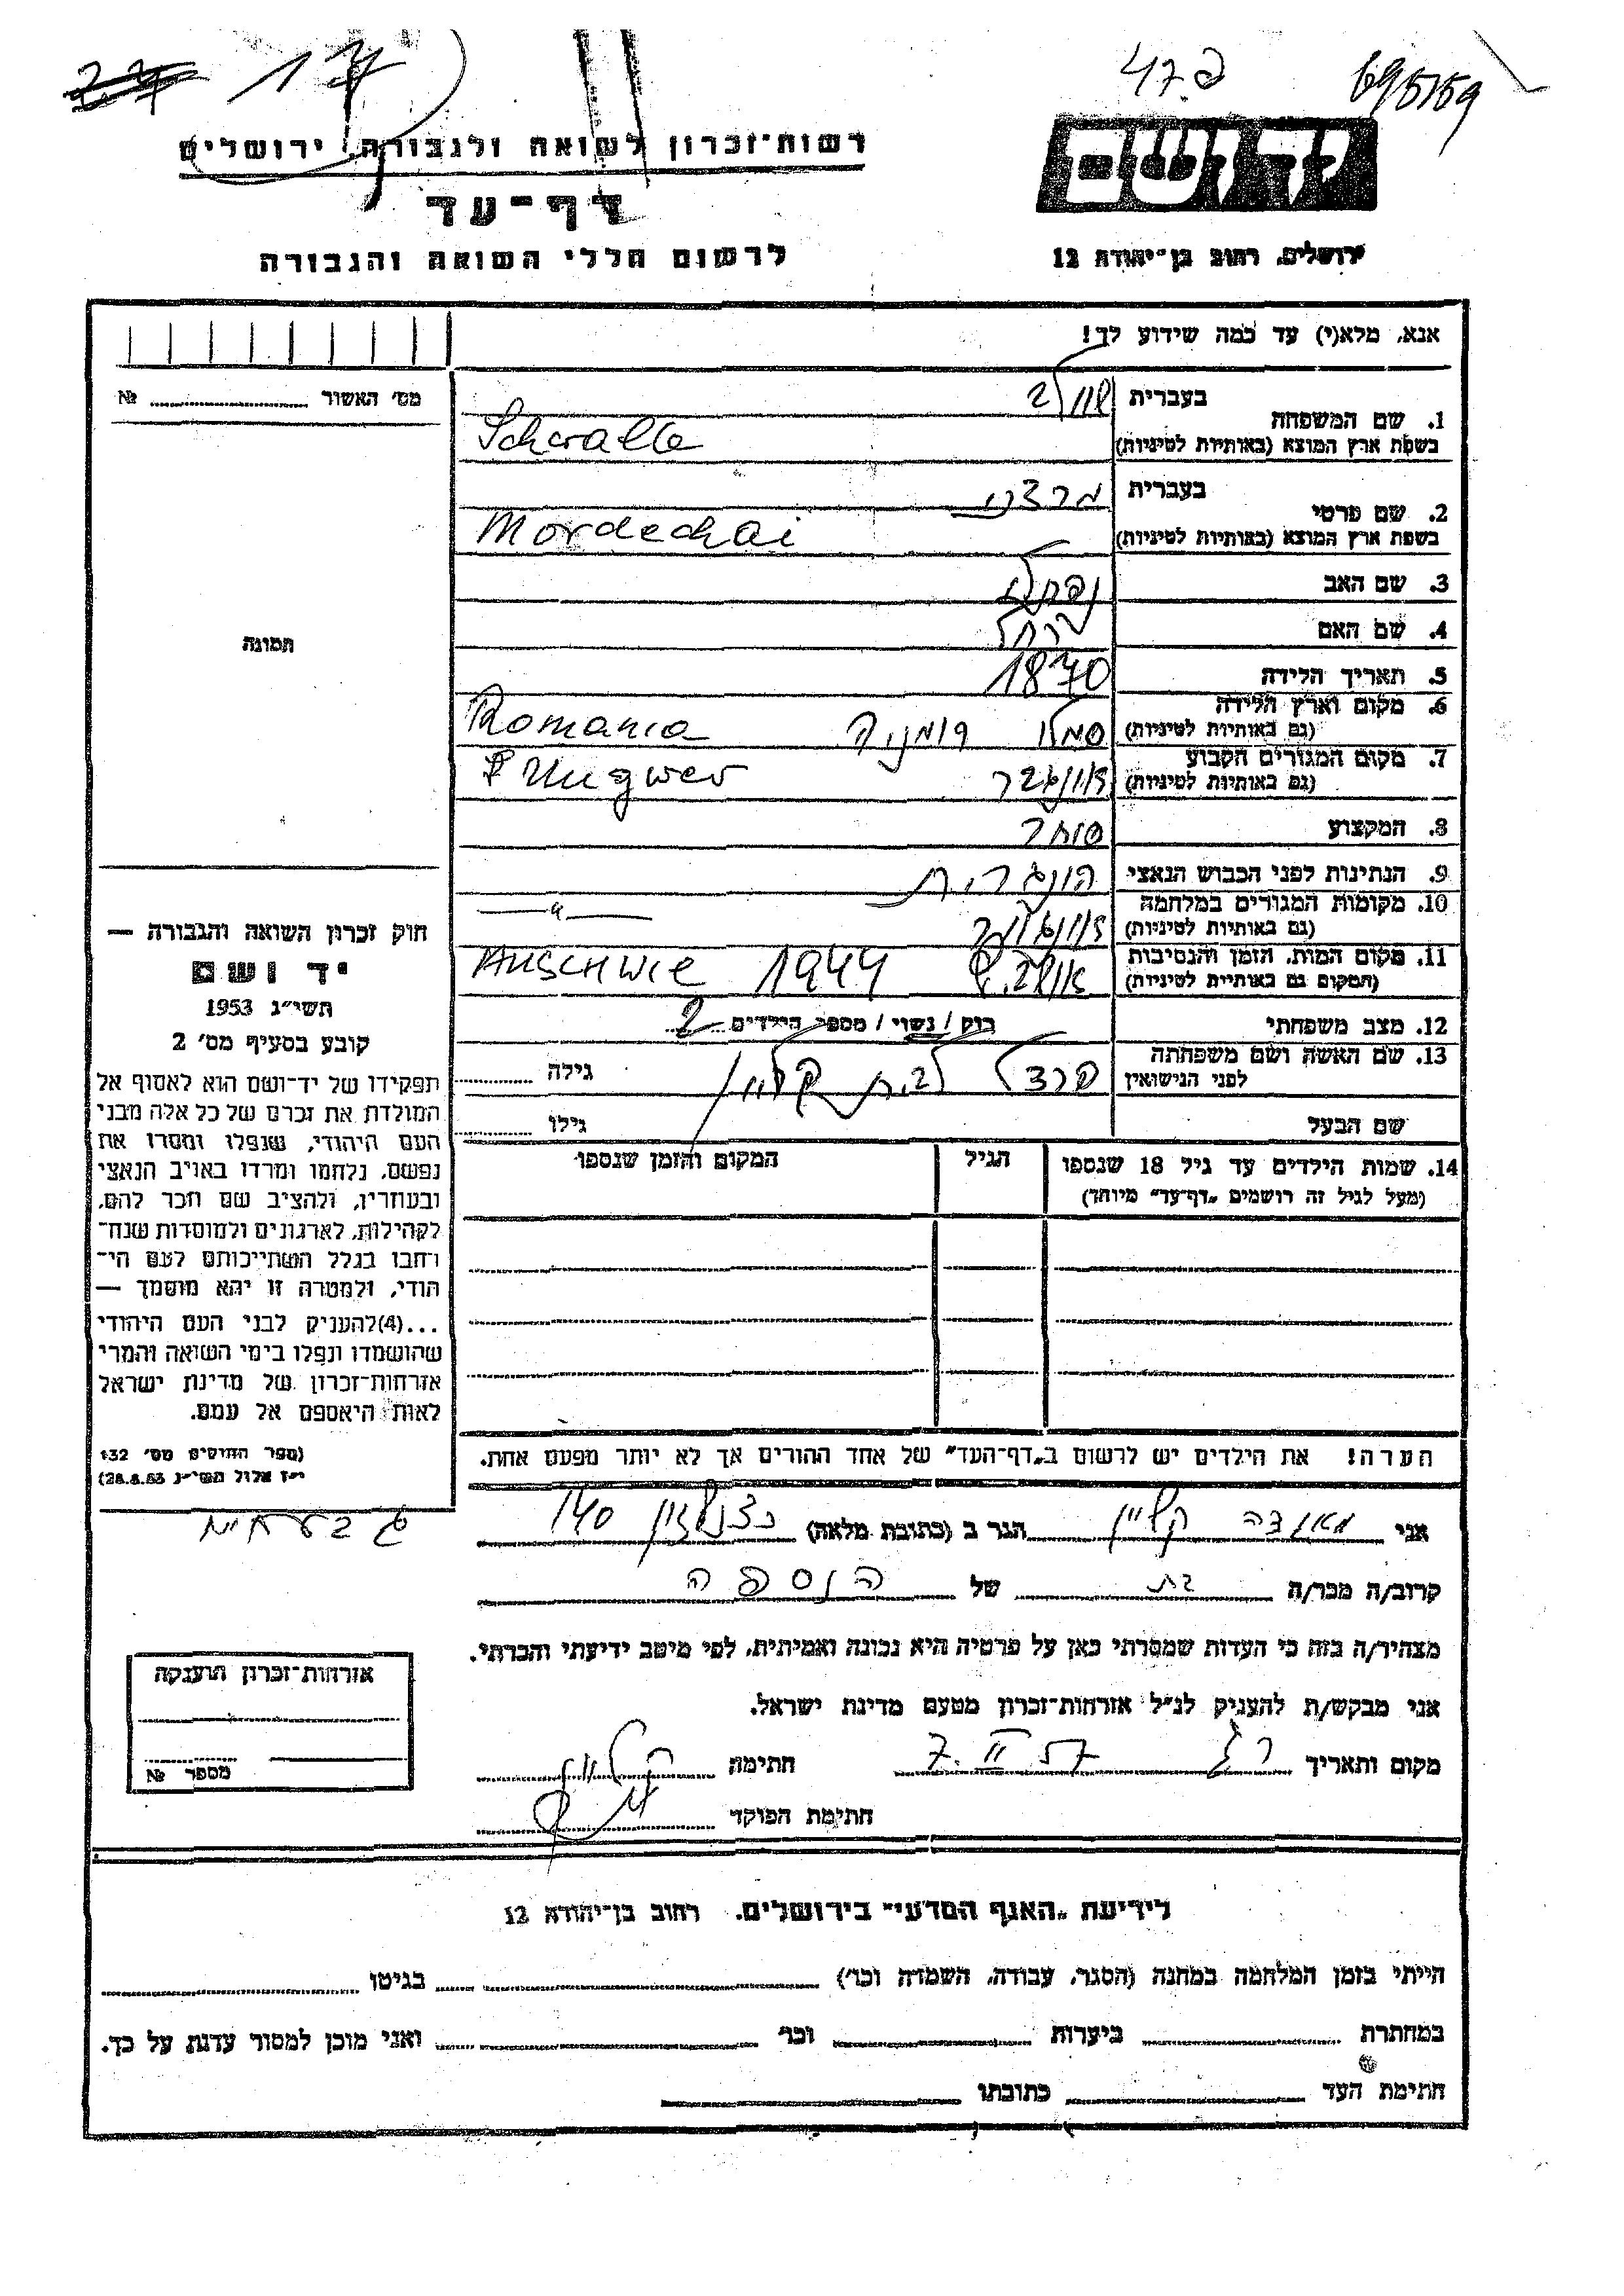 17
47 פ
695159
רשות-זכרון לשואה ולגבורה, ירושלים
דף-עד
לרשום חללי השואה והגבורה
ידושם
ירושלים, רחוב בן-יהודה 12
אנא, מלא(י) עד כמה שידוע לך!
מס׳ האשור № 
1. שם המשפחה
בעברית
בשפת ארץ המוצא (באותיות לטיניות)
2. שם פרטי
בעברית מרדכי
בשפת ארץ המוצא (באותיות לטיניות) Mordechai
3. שם האב נפתלי
4. שם האם
5. תאריך הלידה 1870
6. מקום וארץ הלידה
(גם באותיות לטיניות) רומניה Romania
7. מקום המגורים הקבוע
(גם באותיות לטיניות)
8. המקצוע סוחר
9. הנתינות לפני הכבוש הנאצי הונגרית
10. מקומות המגורים במלחמה
(גם באותיות לטיניות) —〃—
11. מקום המות, הזמן והנסיבות
(המקום גם באותיות לטיניות) 1944
12. מצב משפחתי רווק / נשוי / מספר הילדים 2
13. שם האשה ושם משפחתה
לפני הנישואין לבית קליין גילה
שם הבעל גילו
14. שמות הילדים עד גיל 18 שנספו
(מעל לגיל זה רושמים „דף-עד״ מיוחד)
הגיל
המקום והזמן שנספו
הערה! את הילדים יש לרשום ב„דף-העד״ של אחד ההורים אך לא יותר מפעם אחת.
תמונה
חוק זכרון השואה והגבורה —
יד ושם
תשי״ג 1953
קובע בסעיף מס׳ 2
תפקידו של יד-ושם הוא לאסוף אל
המולדת את זכרם של כל אלה מבני
העם היהודי, שנפלו ומסרו את
נפשם, נלחמו ומרדו באויב הנאצי
ובעוזריו, ולהציב שם וזכר להם,
לקהילות, לארגונים ולמוסדות שנח-
רבו בגלל השתייכותם לעם הי-
הודי, ולמטרה זו יהא מוסמך —
...(4)להעניק לבני העם היהודי
שהושמדו ונפלו בימי השואה והמרי
אזרחות-זכרון של מדינת ישראל
לאות היאספם אל עמם.
(ספר החוקים מס׳ 132
י״ז אלול תשי״ג 28.8.53)
אני קליין הגר ב (כתובת מלאה) 140
גבעתיים
קרוב/ה מכר/ה בת של הנספה
מצהיר/ה בזה כי העדות שמסרתי כאן על פרטיה היא נכונה ואמיתית, לפי מיטב ידיעתי והכרתי.
אני מבקש/ת להעניק לנ״ל אזרחות-זכרון מטעם מדינת ישראל.
מקום ותאריך רג 7.II 57 חתימה
חתימת הפוקד
אזרחות-זכרון הוענקה
מספר №
לידיעת „האגף המדעי״ בירושלים, רחוב בן-יהודה 12
הייתי בזמן המלחמה במחנה (הסגר, עבודה, השמדה וכו׳) בגיטו
במחתרת ביערות וכו׳ ואני מוכן למסור עדות על כך.
חתימת העד כתובתו